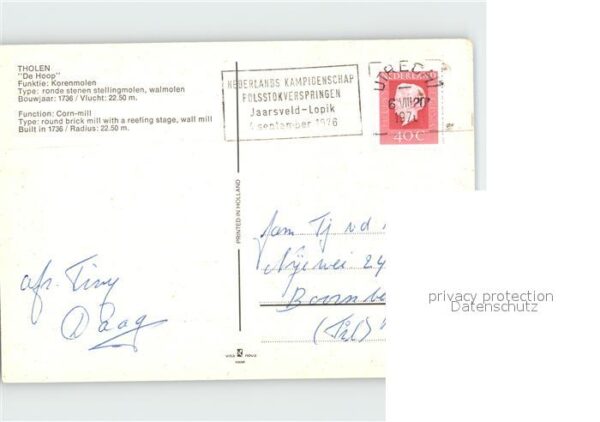 THOLEN
"De Hoop"
Funktie: Korenmolen
Type: ronde stenen stellingmolen, walmolen
Bouwjaar: 1736 / Vlucht: 22.50 m.
Function: Corn-mill
Type: round brick mill with a reefing stage, wall mill
Built in 1736 / Radius: 22.50 m.
NEDERLANDS KAMPIOENSCHAP
POLSSTOKVERSPRINGEN
Jaarsveld-Lopik
4 september 1976
UTRECHT
NEDERLAND
40c
PRINTED IN HOLLAND
fam Tj vd
Boornbe
afz. Tiny
privacy protection
Datenschutz
vita nova